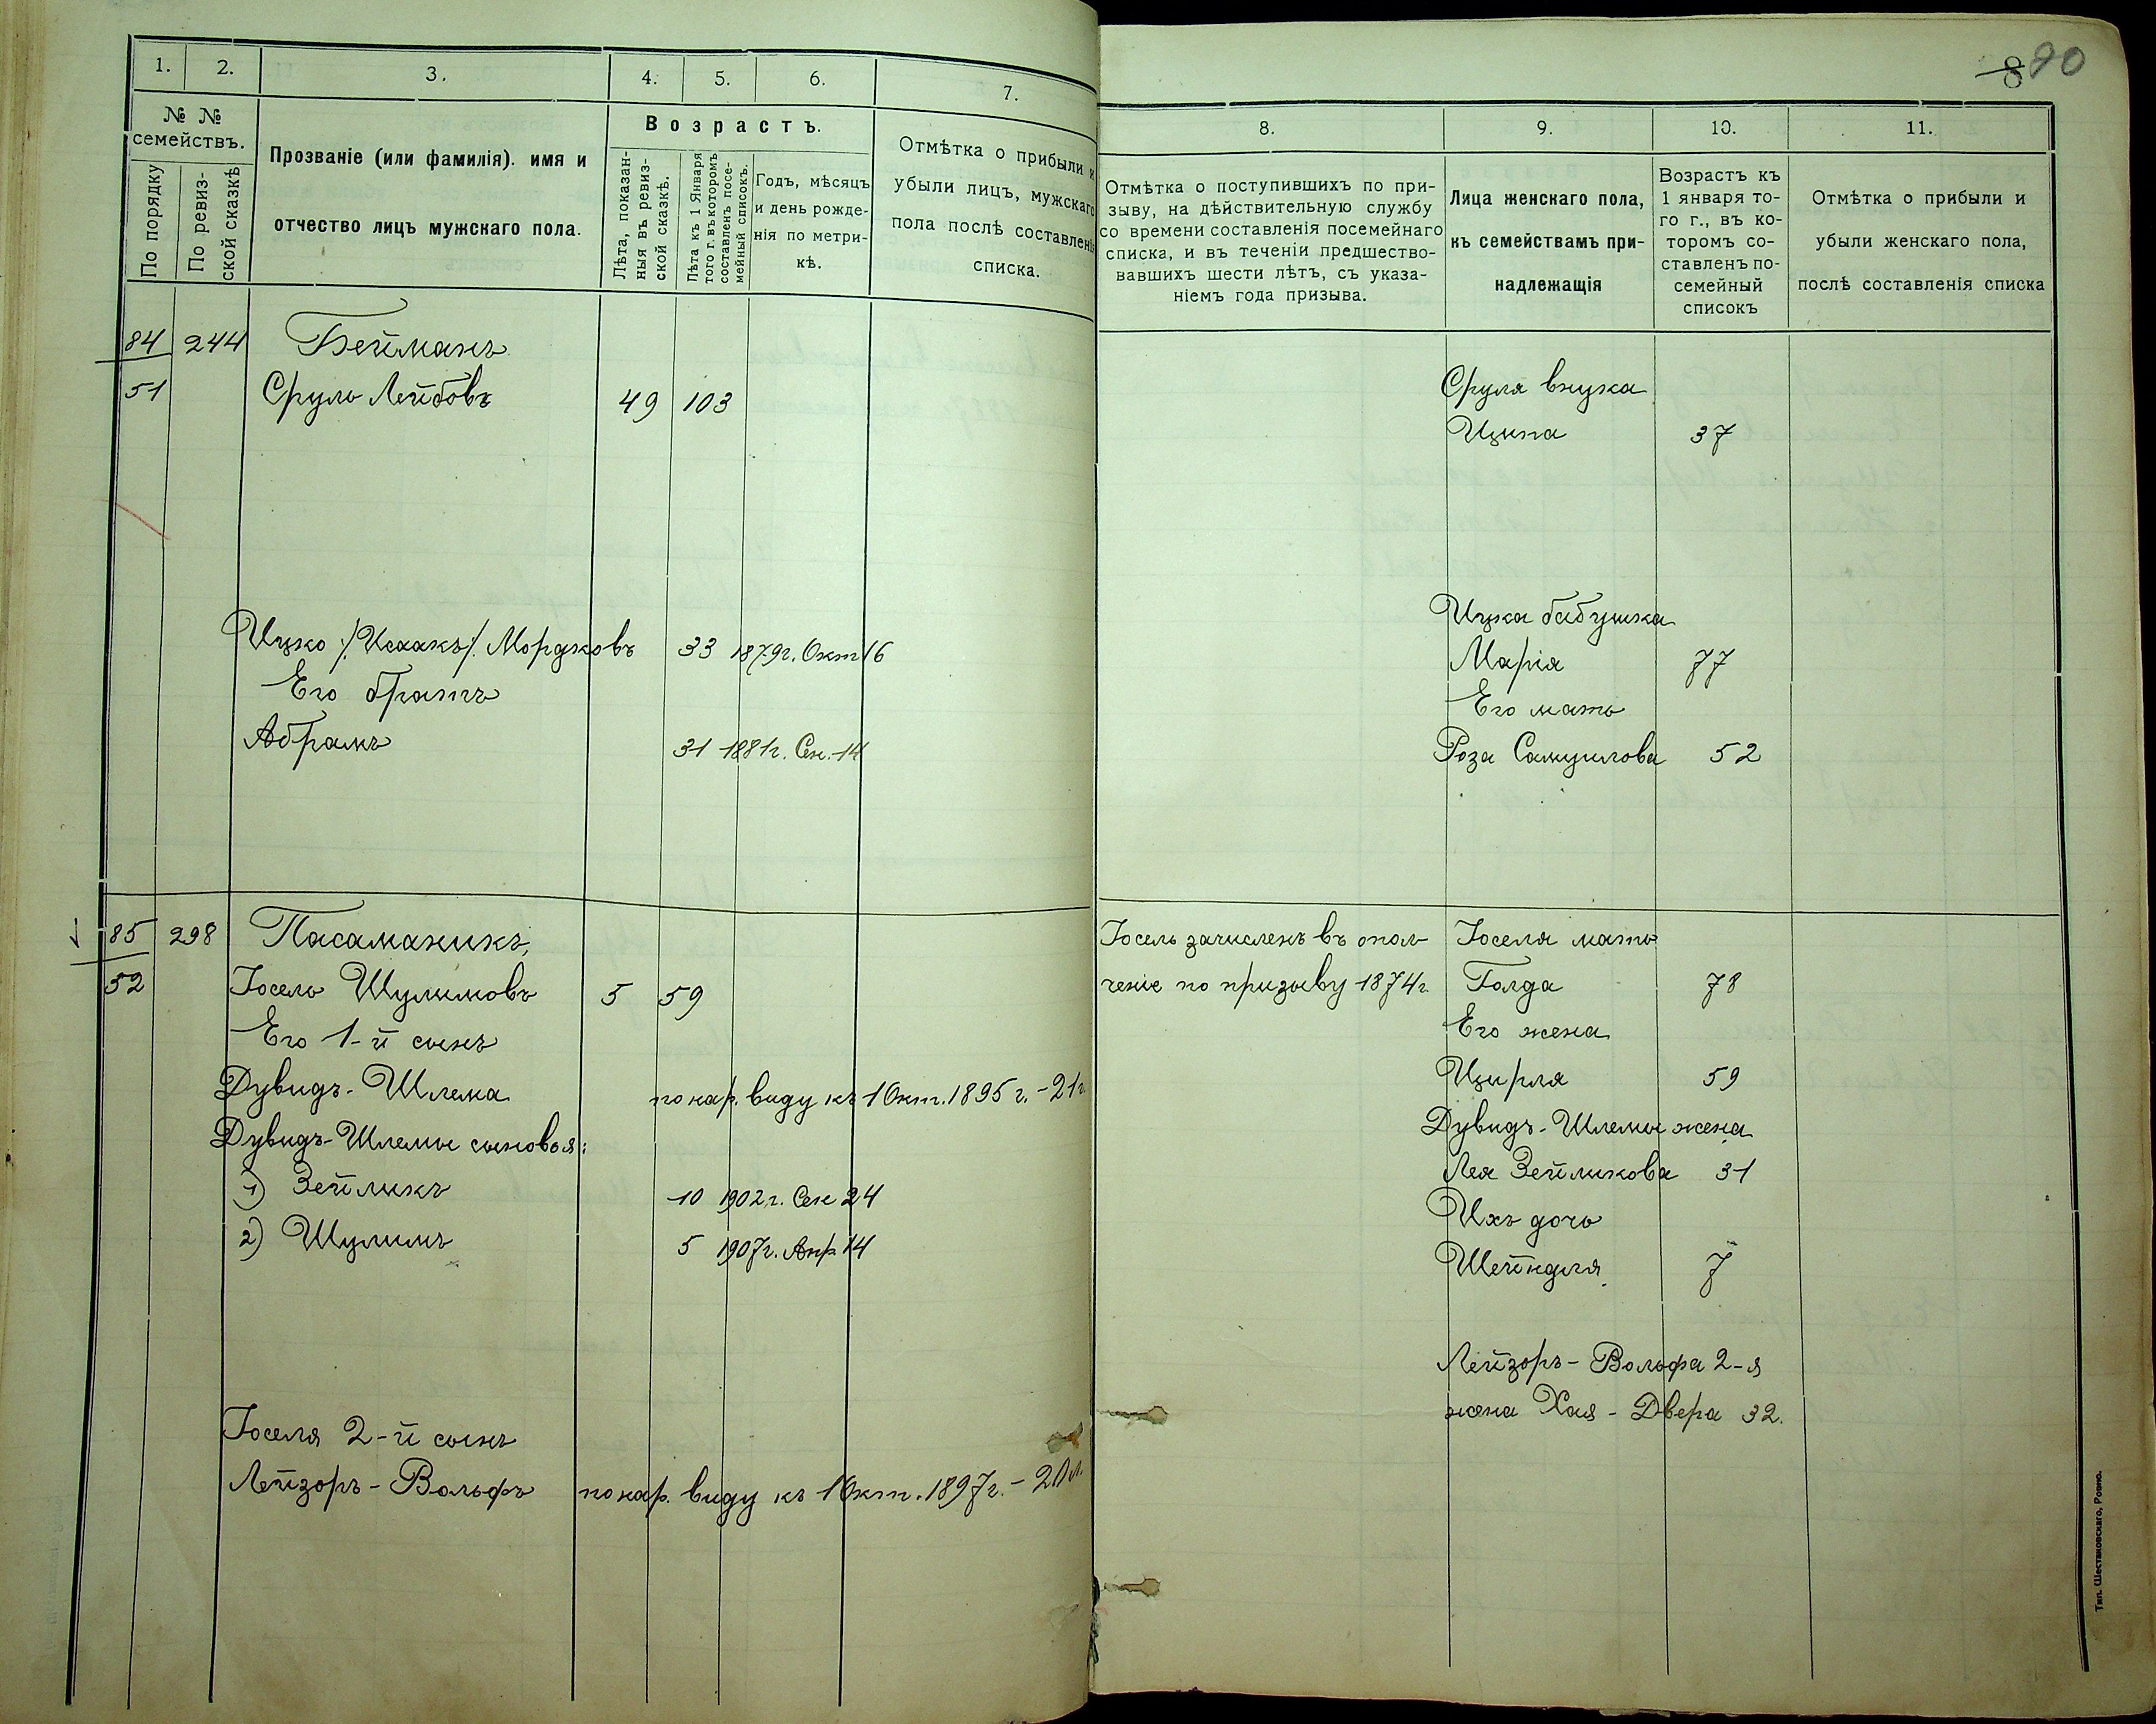 8 90
1. 2. 3. 4. 5. 6. 7.
№ № семействъ.
По порядку
По ревизской сказкѣ
Прозваніе (или фамилія). имя и
отчество лицъ мужскаго пола.
Возрастъ.
Лѣта, показан-
ныя въ ревиз-
ской сказкѣ.
Лѣта къ 1 Января
того г. въ которомъ
составленъ посе-
мейный списокъ.
Годъ, мѣсяцъ
и день рожде-
нія по метри-
кѣ.
Отмѣтка о прибыли и
убыли лицъ, мужскаго
пола послѣ составленія
списка.
84 244 Бейманъ
51 Сруль Лейбовъ 49 103
Ицко /: Исаакъ :/ Мордковъ 33 1879г. Окт 16
Его братъ
Абрамъ 31 1881г. Сен. 14
85 298 Пасаманикъ,
52 Іосель Шулимовъ 5 59
Его 1-й сынъ
Дувидъ-Шлема по нар. виду къ 1 Окт. 1895 г. - 21 г.
Дувидъ-Шлемы сыновья:
1) Зейликъ 10 1902 г. Сен 24
2) Шулимъ 5 1907 г. Апр 14
Іоселя 2-й сынъ
Лейзоръ-Вольфъ по нар. виду къ 1 Окт. 1897 г. - 20 л.
8. 9. 10. 11.
Отмѣтка о поступившихъ по при-
зыву, на дѣйствительную службу
со времени составленія посемейнаго
списка, и въ теченіи предшество-
вавшихъ шести лѣтъ, съ указа-
ніемъ года призыва.
Лица женскаго пола,
къ семействамъ при-
надлежащія
Возрастъ къ
1 января то-
го г., въ ко-
торомъ со-
ставленъ по-
семейный
списокъ
Отмѣтка о прибыли и
убыли женскаго пола,
послѣ составленія списка
Сруля внука
Ципа 37
Ицка бабушка
Марія 77
Его мать
Роза Самуилова 52
Іосель зачисленъ въ опол- Іоселя мать
ченіе по призыву 1874 г. Голда 78
Его жена
Цирля 59
Дувидъ-Шлемы жена
Лея Зейликова 31
Ихъ дочь
Шейндля 7
Лейзоръ-Вольфа 2-я
жена Хая-Двера 32.
Тип. Шестаковскаго, Ровно.